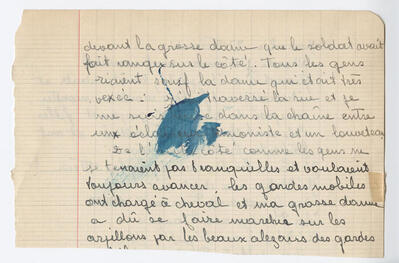 devant la grosse dame que le soldat avait
fait ranger sur le côté. Tous les gens
riaient sauf la dame qui était très
vexée. traversé la rue et je
me dans la chaîne entre
une et un louveteau
De l' côté comme les gens ne
se tenaient pas tranquilles et voulaient
toujours avancer, les gardes mobiles
ont chargé à cheval et ma grosse dame
a dû se faire marcher sur les
arpillons par les beaux alezans des gardes